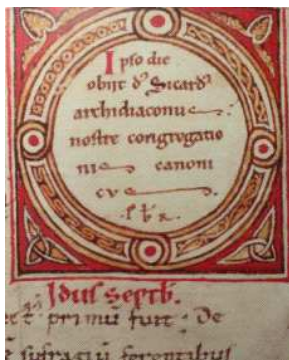 Ipso die
obijt dꝰ Sicardꝰ
archidiaconus
nostre congregatio
nis canoni
cus
Idus septb.
primū fuit : De
sufragiū ferentibus